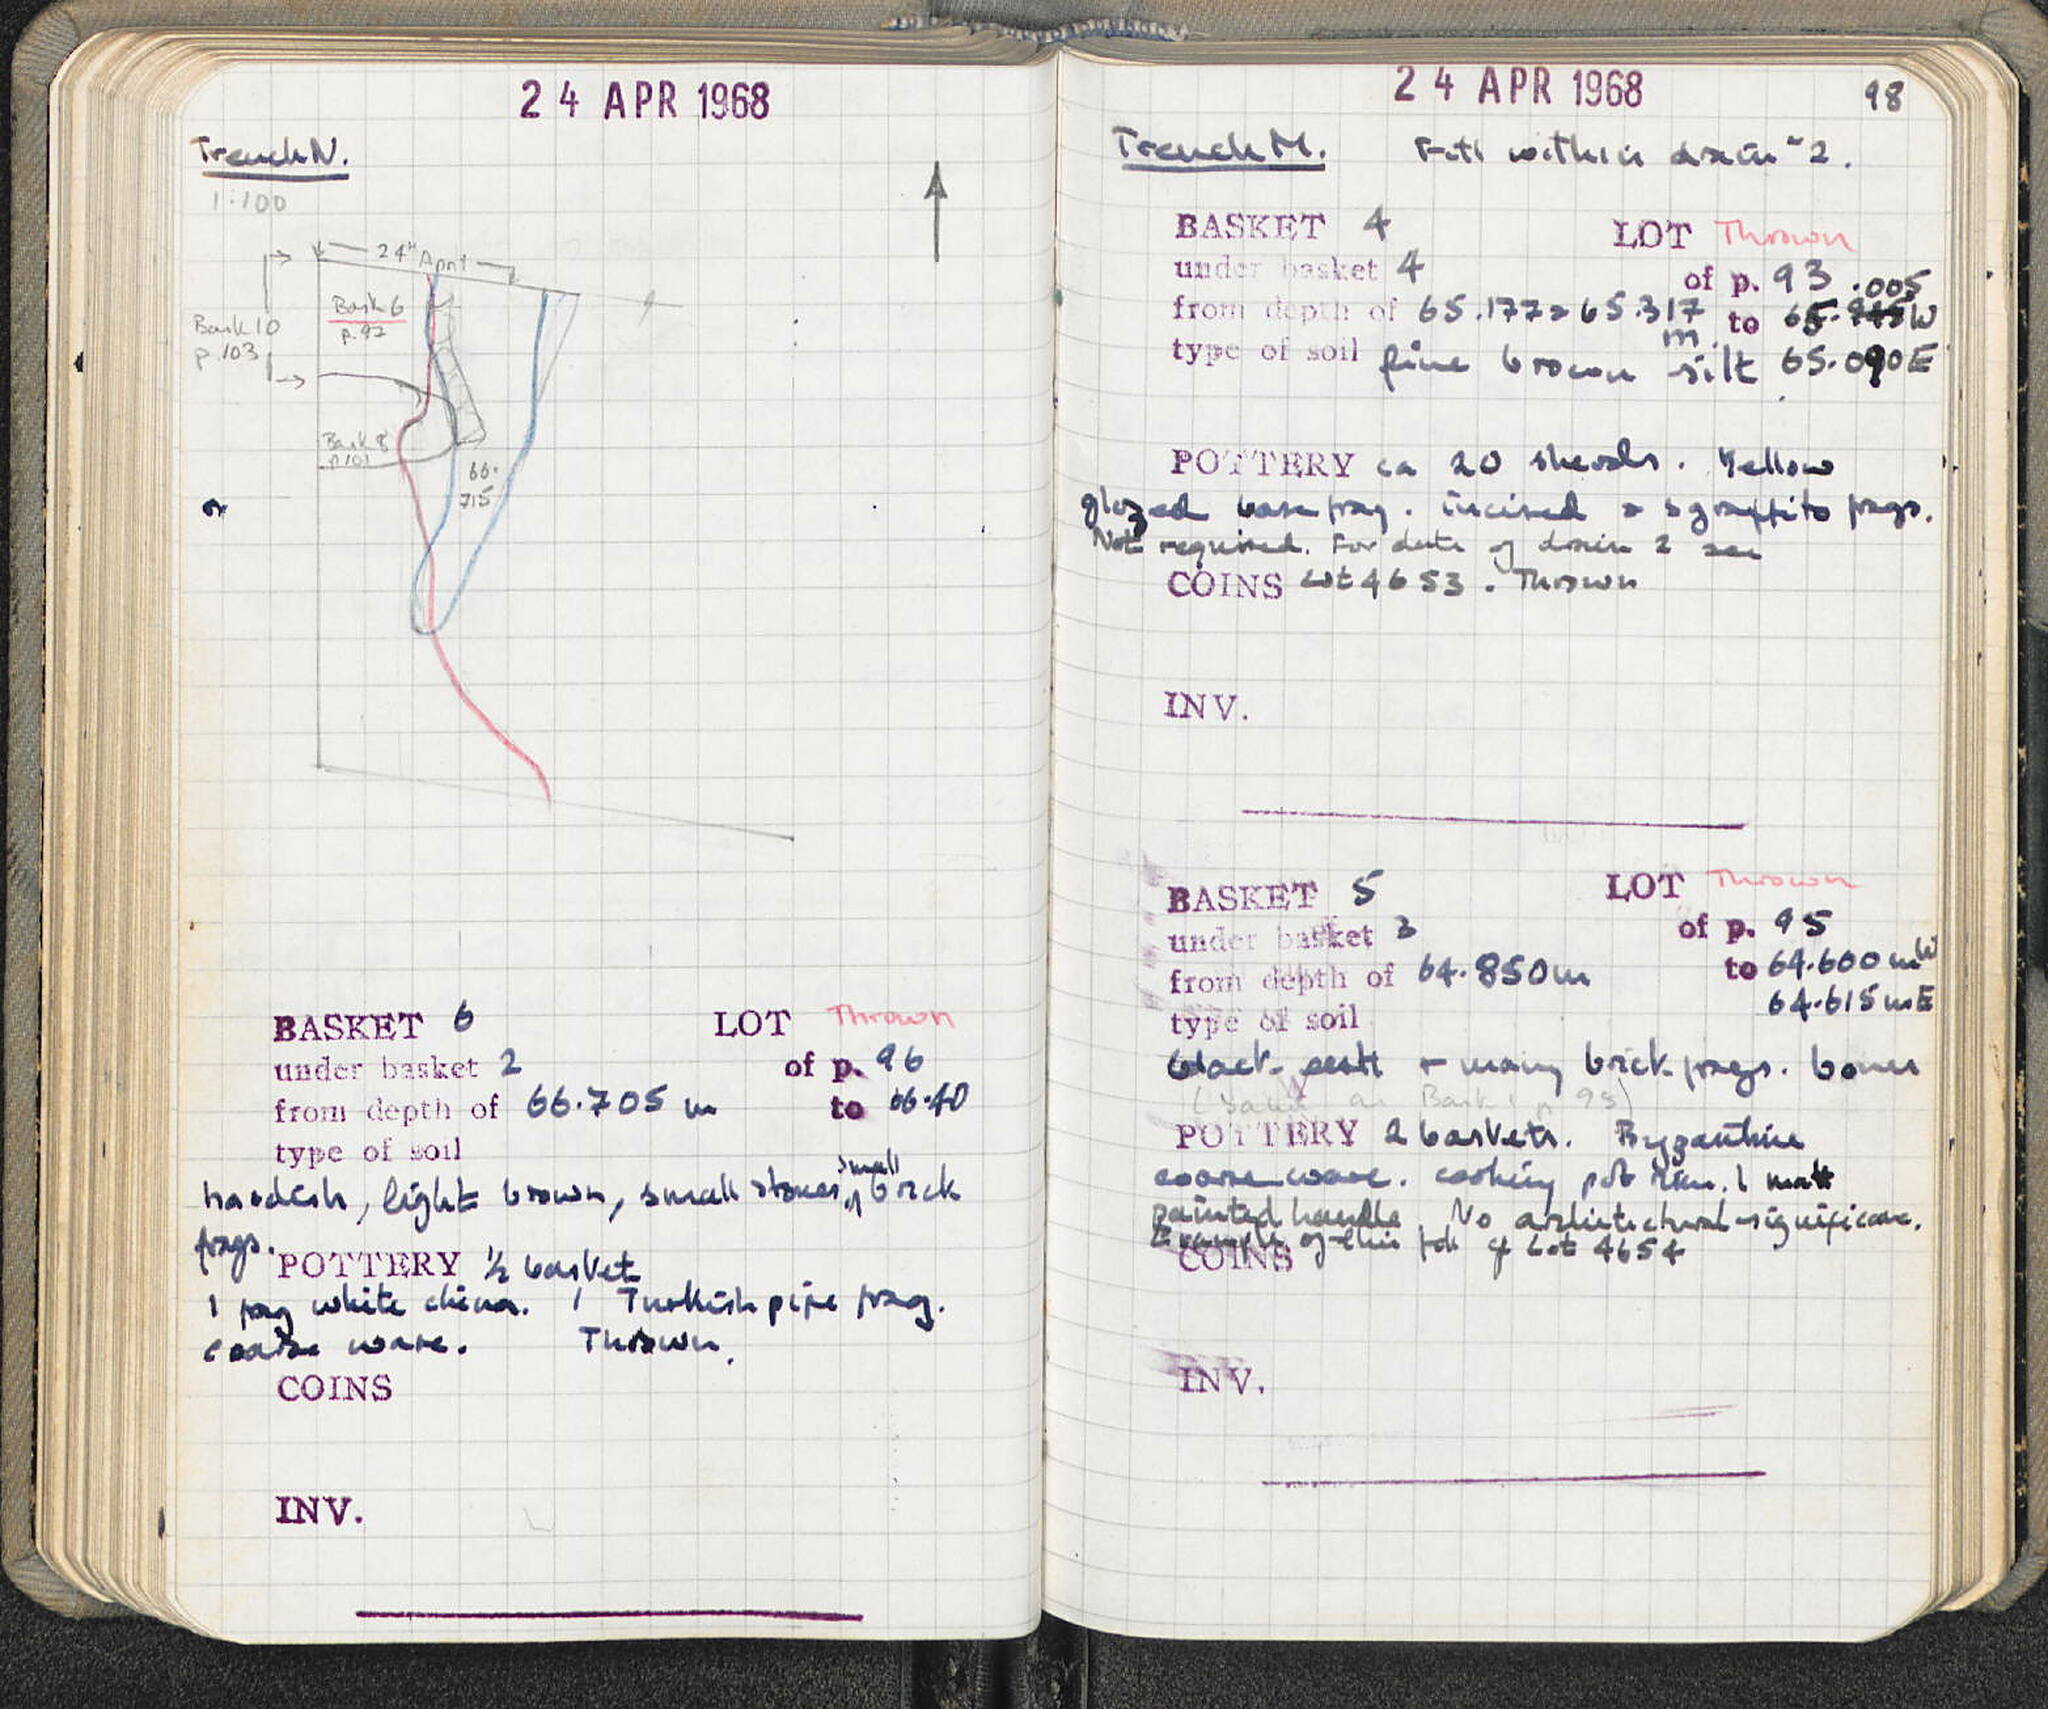 24 APR 1968
Trench N.
1:100
24th April
Bask 6
p. 97
Bask 10
p. 103
Bask 8
p 101
66.
715
BASKET 6 LOT Thrown
under basket 2 of p. 96
from depth of 66.705 m to 66.40
type of soil
hardish, light brown, small stones, small brick
frags.
POTTERY 1/2 basket
1 frag white china. 1 Turkish pipe frag.
coarse ware. Thrown.
COINS
INV.
24 APR 1968 98
Trench M. Fill within drain 2.
BASKET 4 LOT Thrown
under basket 4 of p. 93
from depth of 65.177 & 65.317 m. to 65.005 W
type of soil fine brown silt 65.090 E
POTTERY ca 20 sherds. Yellow
glazed base frag. incised & sgraffito frags.
Not required. For date of drain 2 see
COINS Lot 4653. Thrown
INV.
BASKET 5 LOT Thrown
under basket 3 of p. 95
from depth of 64.850m to 64.600 m W
64.615 m E
type of soil
black earth + many brick frags. bones
(Same as Bask p 95)
POTTERY 2 baskets. Byzantine
coarse ware. cooking pot rim. 1 matt
painted handle. No architectural significance.
Example of this cf Lot 4654
COINS
INV.